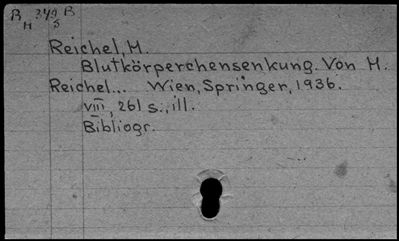 B 349 B
M S
Reichel, M.
Blutkörperchensenkung. Von M.
Reichel... Wien, Springer, 1936.
VIII, 261 s., ill.
Bibliogr.